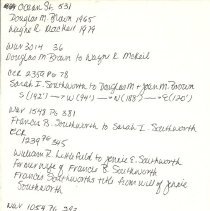 Ocean St. 531
Douglas M. Brown 1965
Wayne R. MacKeil 1979
WBV 3014 36
Douglas M Brown to Wayne R. McKeil
CCR 2358 Pg 78
Sarah I. Southworth to Douglas M & Joan M. Brown
S (192') → W (94') → N (188') → E (120')
WBV 1548 Pg 381
Francis B. Southworth to Sarah I. Southworth
CCR
1239 Pg 345
William R. Littlefield to Jennie E. Southworth
former wife of Francis B. Southworth
Frances Southworths title from will of Jennie
Southworth
WBV 1054 Pg 293